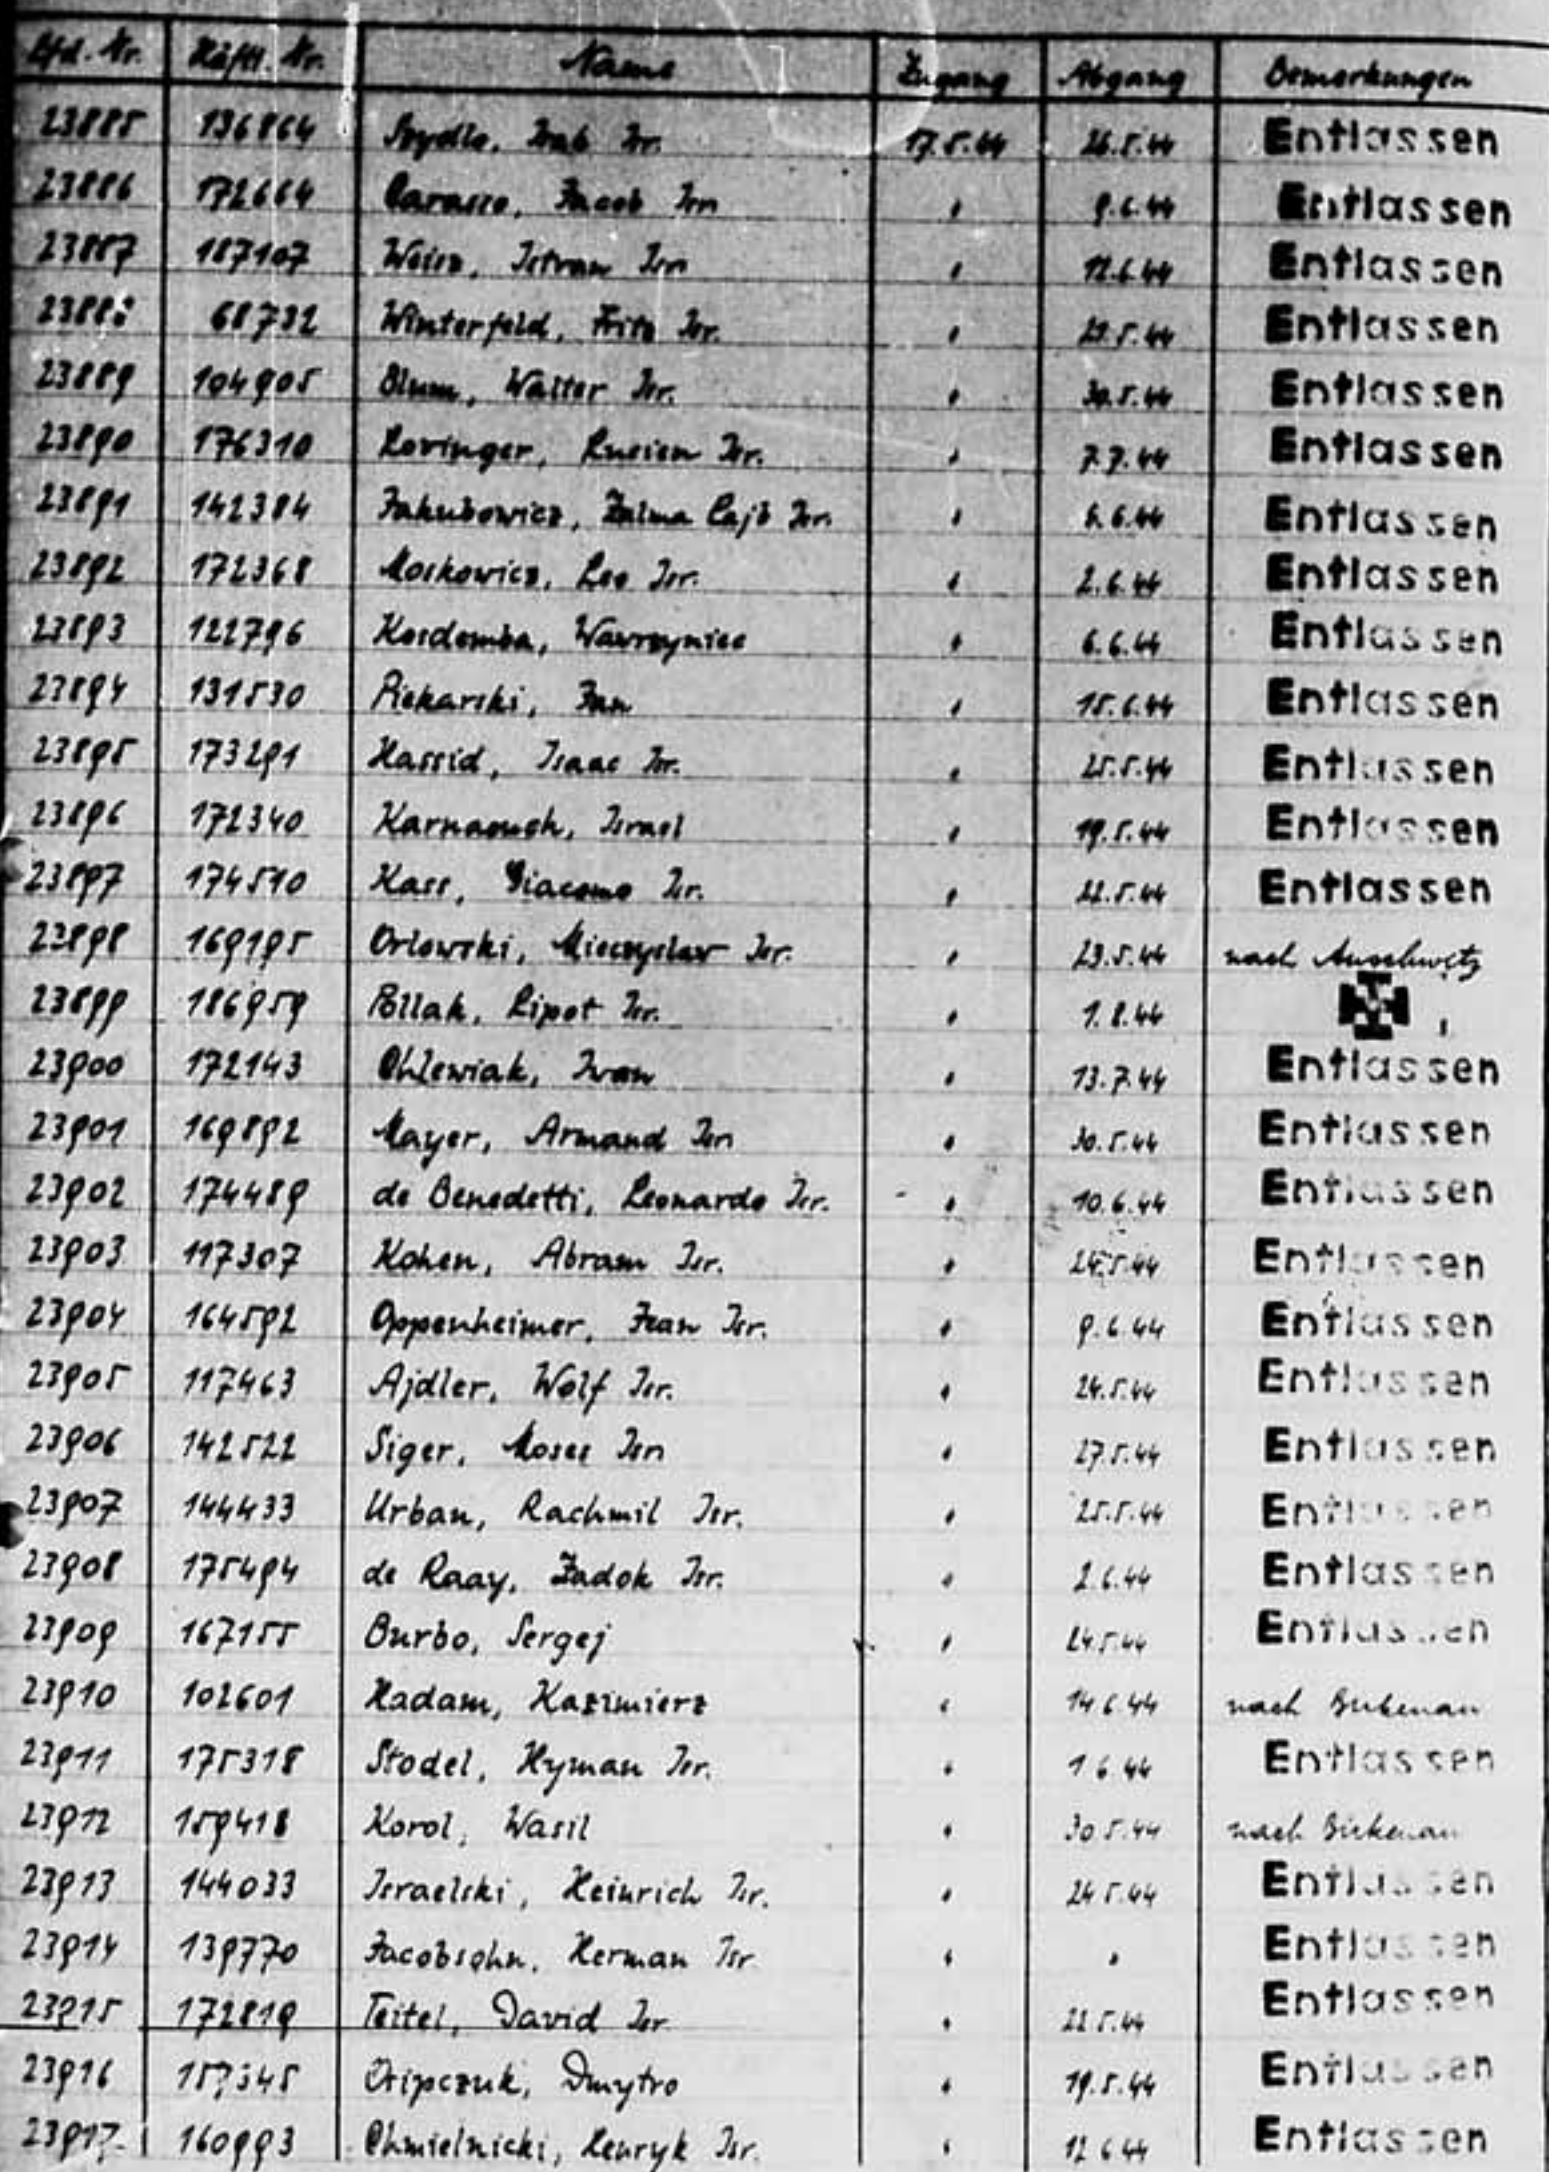 Lfd. Nr. Häftl. Nr. Name Zugang Abgang Bemerkungen
23885 136864 Szydlo, Isr. 17.5.44 26.5.44 Entlassen
23886 172664 Carasso, Jacob Isr. " 9.6.44 Entlassen
23887 187107 Weisz, Istvan Isr. " 12.6.44 Entlassen
23888 68732 Winterfeld, Fritz Isr. " 29.5.44 Entlassen
23889 104905 Blum, Walter Isr. " 30.5.44 Entlassen
23890 176310 Lovinger, Isr. " 7.7.44 Entlassen
23891 142384 Jakubowicz, Zalma Lajb Isr. " 6.6.44 Entlassen
23892 172368 Moskowicz, Leo Isr. " 2.6.44 Entlassen
23893 122796 Kosdemba, Wawrzyniec " 6.6.44 Entlassen
23894 131530 Piekarski, Jan " 15.6.44 Entlassen
23895 173291 Hassid, Isaac Isr. " 25.5.44 Entlassen
23896 172340 Karnaouch, Israel " 19.5.44 Entlassen
23897 174510 Kass, Giacomo Isr. " 22.5.44 Entlassen
23898 169195 Orlowski, Mieczyslaw Isr. " 23.5.44 nach Auschwitz
23899 186959 Pollak, Lipot Isr. " 1.8.44
23900 172143 Chlewiak, Iwan " 13.7.44 Entlassen
23901 169892 Mayer, Armand Isr. " 30.5.44 Entlassen
23902 174489 de Benedetti, Leonardo Isr. " 10.6.44 Entlassen
23903 117307 Kohen, Abram Isr. " 24.5.44 Entlassen
23904 164592 Oppenheimer, Jean Isr. " 9.6.44 Entlassen
23905 117463 Ajdler, Wolf Isr. " 24.5.44 Entlassen
23906 142522 Siger, Moses Isr. " 27.5.44 Entlassen
23907 144433 Urban, Rachmil Isr. " 25.5.44 Entlassen
23908 175494 de Raay, Zadok Isr. " 2.6.44 Entlassen
23909 167155 Burbo, Sergej " 24.5.44 Entlassen
23910 102601 Hadam, Kazimierz " 14 6 44 nach Birkenau
23911 175318 Stodel, Hyman Isr. " 1 6 44 Entlassen
23912 159418 Korol, Wasil " 30 5.44 nach Birkenau
23913 144033 Israelski, Heinrich Isr. " 24 5.44 Entlassen
23914 139770 Jacobsohn, Herman Isr " " Entlassen
23915 172819 Teitel, David Isr " 22 5.44 Entlassen
23916 157345 Osipczuk, Dmytro " 19.5.44 Entlassen
23917 160993 Chmielnicki, Henryk Isr. " 12 6 44 Entlassen